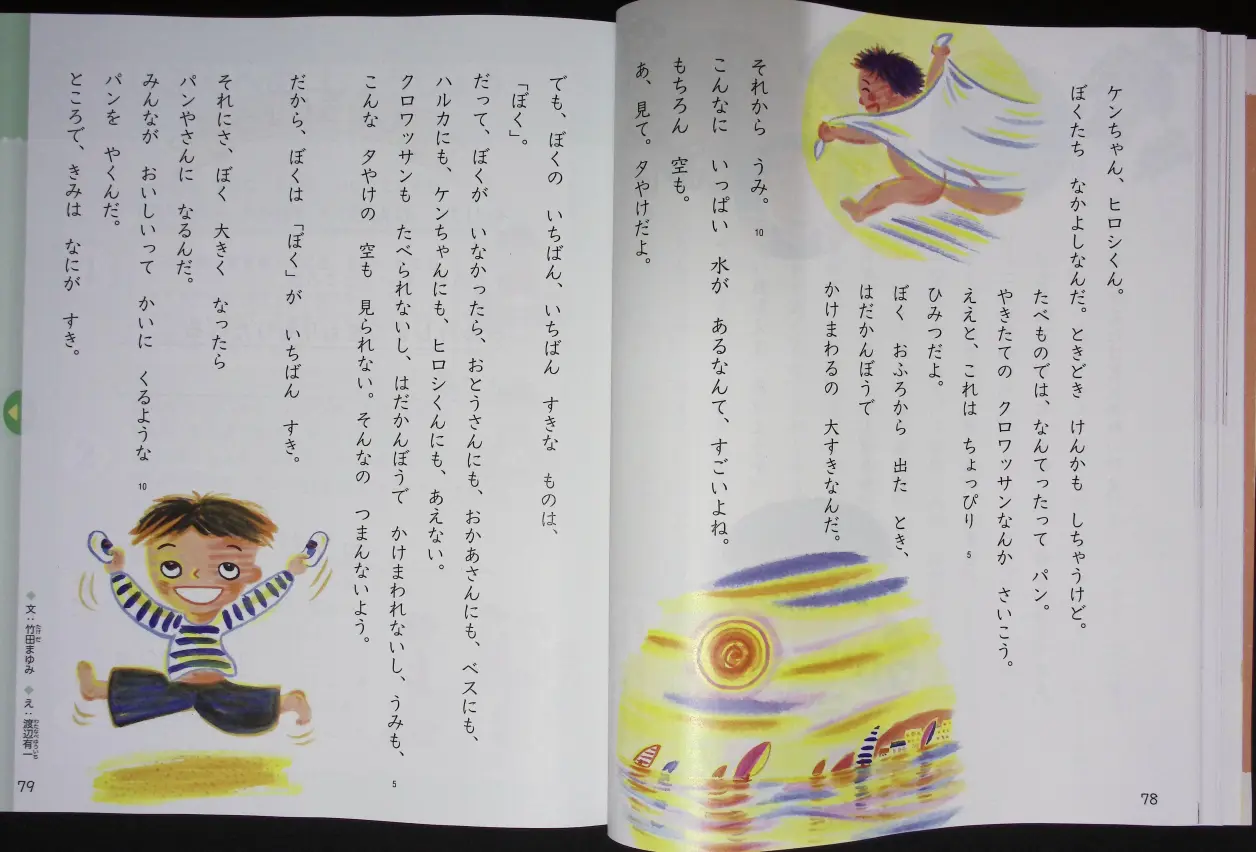 ケンちゃん、ヒロシくん。
ぼくたち なかよしなんだ。ときどき けんかも しちゃうけど。
たべものでは、なんてったって パン。
やきたての クロワッサンなんか さいこう。
ええと、これは ちょっぴり
5
ひみつだよ。
ぼく おふろから 出た とき、
はだかんぼうで
かけまわるの 大すきなんだ。
それから うみ。
10
こんなに いっぱい 水が あるなんて、すごいよね。
もちろん 空も。
あ、見て。夕やけだよ。
78
でも、ぼくの いちばん、いちばん すきな ものは、
「ぼく」。
だって、ぼくが いなかったら、おとうさんにも、おかあさんにも、ベスにも、
ハルカにも、ケンちゃんにも、ヒロシくんにも、あえない。
クロワッサンも たべられないし、はだかんぼうで かけまわれないし、うみも、
5
こんな 夕やけの 空も 見られない。そんなの つまんないよう。
だから、ぼくは 「ぼく」が いちばん すき。
それにさ、ぼく 大きく なったら
パンやさんに なるんだ。
みんなが おいしいって かいに くるような
10
パンを やくんだ。
ところで、きみは なにが すき。
◆文：竹田まゆみ ◆え：渡辺有一
79